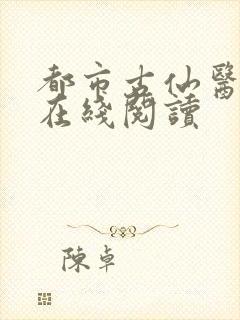 都市古仙醫
在綫閱讀
陳卓